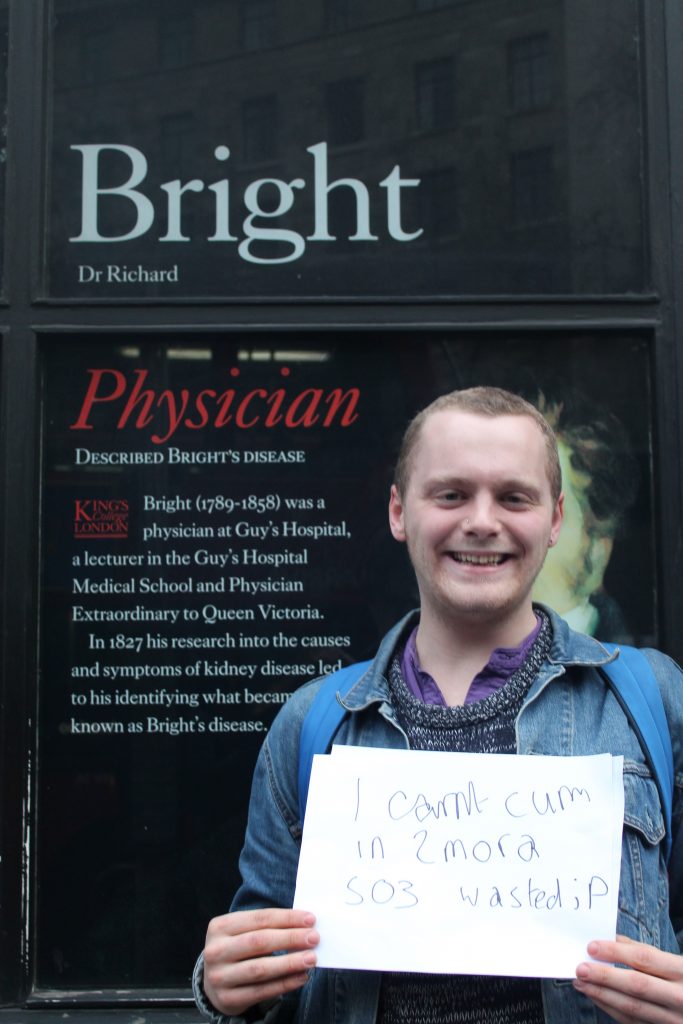 Bright
Dr Richard
Physician
DESCRIBED BRIGHT'S DISEASE
KING'S
College
LONDON
Bright (1789-1858) was a
physician at Guy's Hospital,
a lecturer in the Guy's Hospital
Medical School and Physician
Extraordinary to Queen Victoria.
In 1827 his research into the causes
and symptoms of kidney disease led
to his identifying what became
known as Bright's disease.
I carnt cum
in 2mora
SO3 wasted ;P